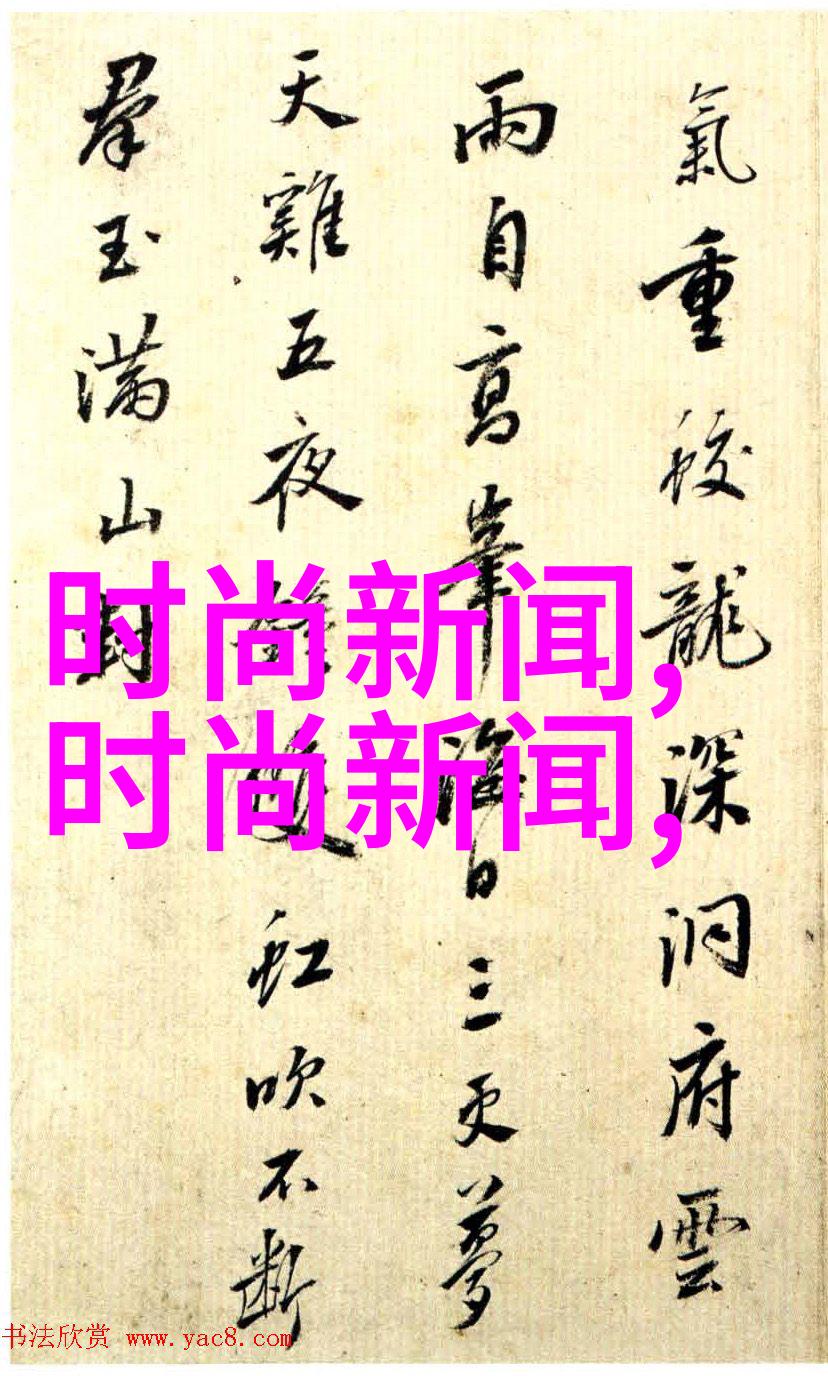 氣重蛟龍深洞府雲
雨自高峯海日三更夢
天雞五夜雙虹吹不斷
羣玉滿山封
时尚新闻,
时尚新闻,
书法欣赏 www.yac8.com